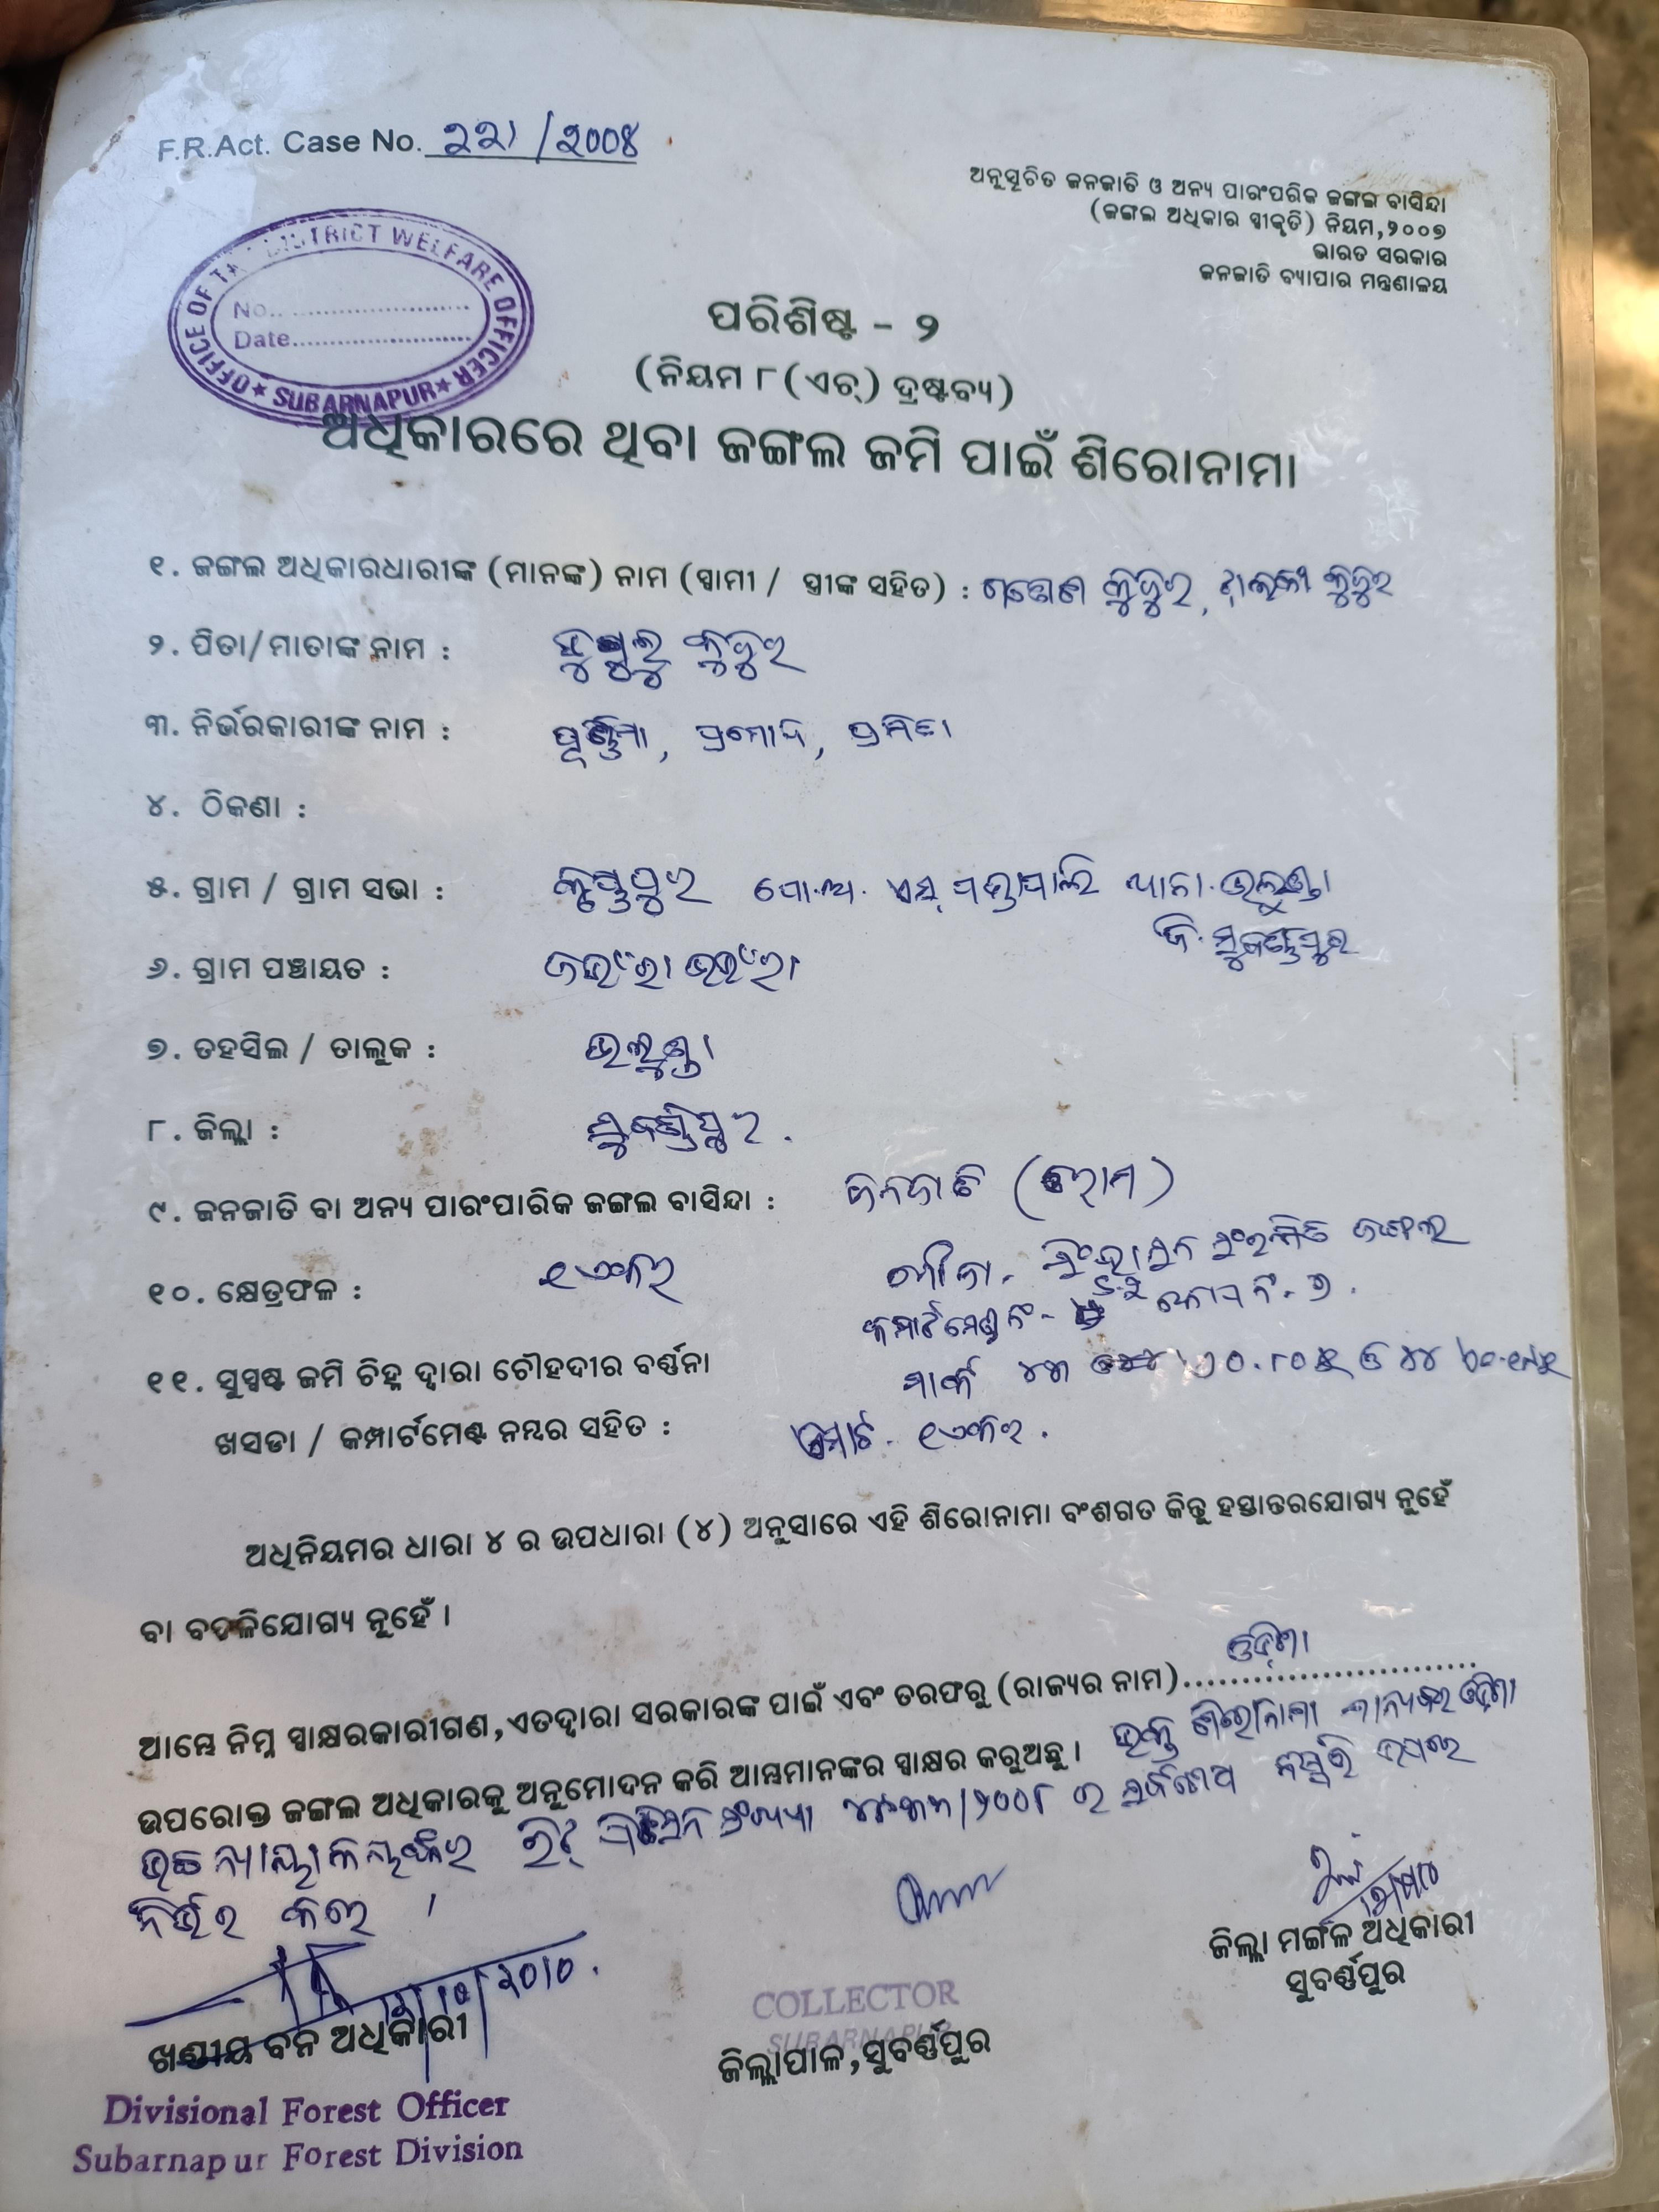 F.R.Act. Case No. ୨୨୧ /2008
ଅନୁସୂଚିତ ଜନଜାତି ଓ ଅନ୍ୟ ପାରଂପରିକ ଜଙ୍ଗଲ ବାସିନ୍ଦା
(ଜଙ୍ଗଲ ଅଧିକାର ସ୍ୱୀକୃତି) ନିୟମ,୨୦୦୭
ଭାରତ ସରକାର
ଜନଜାତି ବ୍ୟାପାର ମନ୍ତ୍ରଣାଳୟ
DISTRICT WELFARE OFFICER
OFFICE OF
No.
Date
SUBARNAPUR
ପରିଶିଷ୍ଟ - ୨
(ନିୟମ ୮(ଏଚ୍) ଦ୍ରଷ୍ଟବ୍ୟ)
ଅଧିକାରରେ ଥିବା ଜଙ୍ଗଲ ଜମି ପାଇଁ ଶିରୋନାମା
୧. ଜଙ୍ଗଲ ଅଧିକାରଧାରୀଙ୍କ (ମାନଙ୍କ) ନାମ (ସ୍ୱାମୀ / ସ୍ତ୍ରୀଙ୍କ ସହିତ) : କୁଜୁର, କୁଜୁର
୨. ପିତା/ମାତାଙ୍କ ନାମ : କୁଜୁର
୩. ନିର୍ଭରକାରୀଙ୍କ ନାମ : ପୂର୍ଣ୍ଣିମା, ପ୍ରମୋଦ, ପ୍ରମିଳା
୪. ଠିକଣା :
୫. ଗ୍ରାମ / ଗ୍ରାମ ସଭା : କୃଷ୍ଣପୁର ପୋ.ଅ. ଥାନା. ଉଲୁଣ୍ଡା
ଜି. ସୁବର୍ଣ୍ଣପୁର
୬. ଗ୍ରାମ ପଞ୍ଚାୟତ :
୭. ତହସିଲ / ତାଲୁକ : ଉଲୁଣ୍ଡା
୮. ଜିଲ୍ଲା : ସୁବର୍ଣ୍ଣପୁର .
୯. ଜନଜାତି ବା ଅନ୍ୟ ପାରଂପାରିକ ଜଙ୍ଗଲ ବାସିନ୍ଦା : ଜନଜାତି
୧୦. କ୍ଷେତ୍ରଫଳ : ୧ଏକର
ସଂରକ୍ଷିତ ଜଙ୍ଗଲ
କମ୍ପାର୍ଟମେଣ୍ଟ ନଂ-
୧୧. ସୁସ୍ପଷ୍ଟ ଜମି ଚିହ୍ନ ଦ୍ୱାରା ଚୌହଦୀର ବର୍ଣ୍ଣନା
ଖସଡା / କମ୍ପାର୍ଟମେଣ୍ଟ ନମ୍ବର ସହିତ : ୧ଏକର .
ଅଧିନିୟମର ଧାରା ୪ ର ଉପଧାରା (୪) ଅନୁସାରେ ଏହି ଶିରୋନାମା ବଂଶଗତ କିନ୍ତୁ ହସ୍ତାନ୍ତରଯୋଗ୍ୟ ନୁହେଁ
ବା ବଦଳିଯୋଗ୍ୟ ନୁହେଁ ।
ଆମ୍ଭେ ନିମ୍ନ ସ୍ୱାକ୍ଷରକାରୀଗଣ,ଏତଦ୍ୱାରା ସରକାରଙ୍କ ପାଇଁ ଏବଂ ତରଫରୁ (ରାଜ୍ୟର ନାମ) ଓଡ଼ିଶା
ଉପରୋକ୍ତ ଜଙ୍ଗଲ ଅଧିକାରକୁ ଅନୁମୋଦନ କରି ଆମ୍ଭମାନଙ୍କର ସ୍ୱାକ୍ଷର କରୁଅଛୁ । ଉକ୍ତ ଶିରୋନାମା ମାନ୍ୟବର ଓଡ଼ିଶା
ଉଚ୍ଚ ନ୍ୟାୟାଳୟଙ୍କର ରିଟ୍ ପିଟିସନ ସଂଖ୍ୟା ର ସର୍ବଶେଷ ନିଷ୍ପତ୍ତି ଉପରେ
ନିର୍ଭର କରେ ।
ଜିଲ୍ଲା ମଙ୍ଗଳ ଅଧିକାରୀ
ସୁବର୍ଣ୍ଣପୁର
2010.
ଖଣ୍ଡୀୟ ବନ ଅଧିକାରୀ
COLLECTOR
SUBARNAPUR
ଜିଲ୍ଲାପାଳ,ସୁବର୍ଣ୍ଣପୁର
Divisional Forest Officer
Subarnapur Forest Division